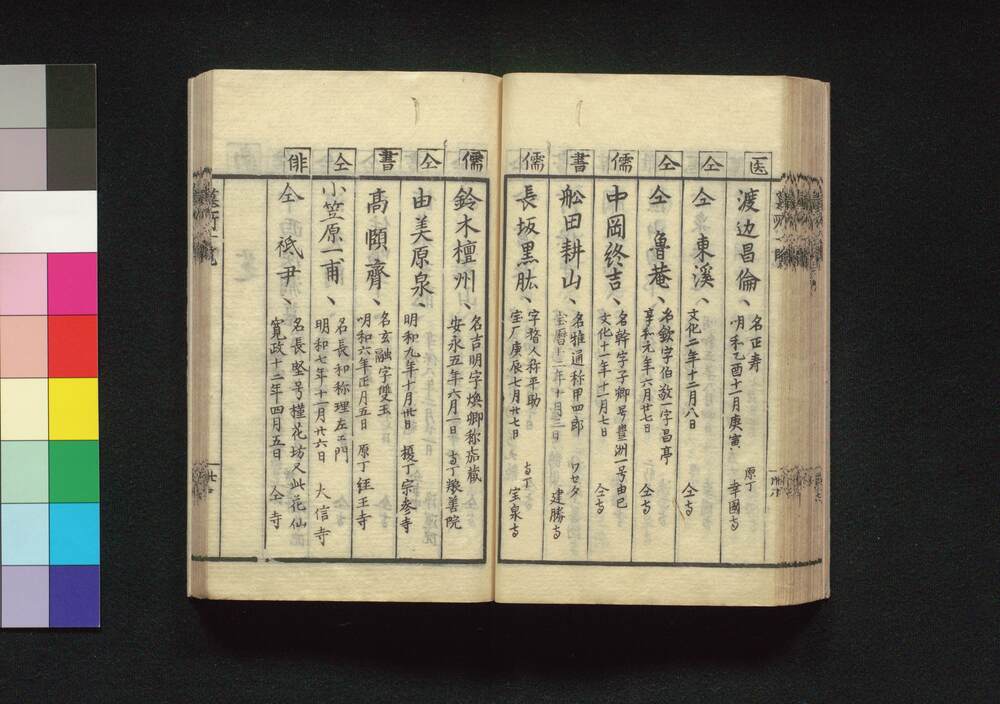 医
渡辺昌倫、
名正寿
明和乙酉十一月庚寅
原丁 幸國寺
仝
仝 東溪、
文化二年十二月八日
仝寺
仝
仝 魯菴、
名欽字伯敬一字昌亭
享和元年六月廿七日
仝寺
儒
中岡終吉、
名幹字子卿号豊洲一号由已
文化十一年十一月七日
仝寺
書
舩田耕山、
名雅通称甲四郎
宝暦十二年十月三日
ワセタ 建勝寺
儒
長坂黒肱、
字棭人称平助
宝厂庚辰七月廿七日
寺丁 宝泉寺
儒
鈴木檀州、
名吉明字煥卿称嘉蔵
安永五年六月一日
寺丁 養善院
仝
由美原泉、
明和九年十月卅日
榎丁 宗参寺
書
高頤齋、
名玄融字雙玉
明和六年正月五日
原丁 経王寺
仝
小笠原一甫、
名長和称理左エ門
明和七年十一月廿六日
大信寺
俳
仝 祗尹、
名長堅号槿花坊又此花仙
寛政十二年四月五日
仝寺